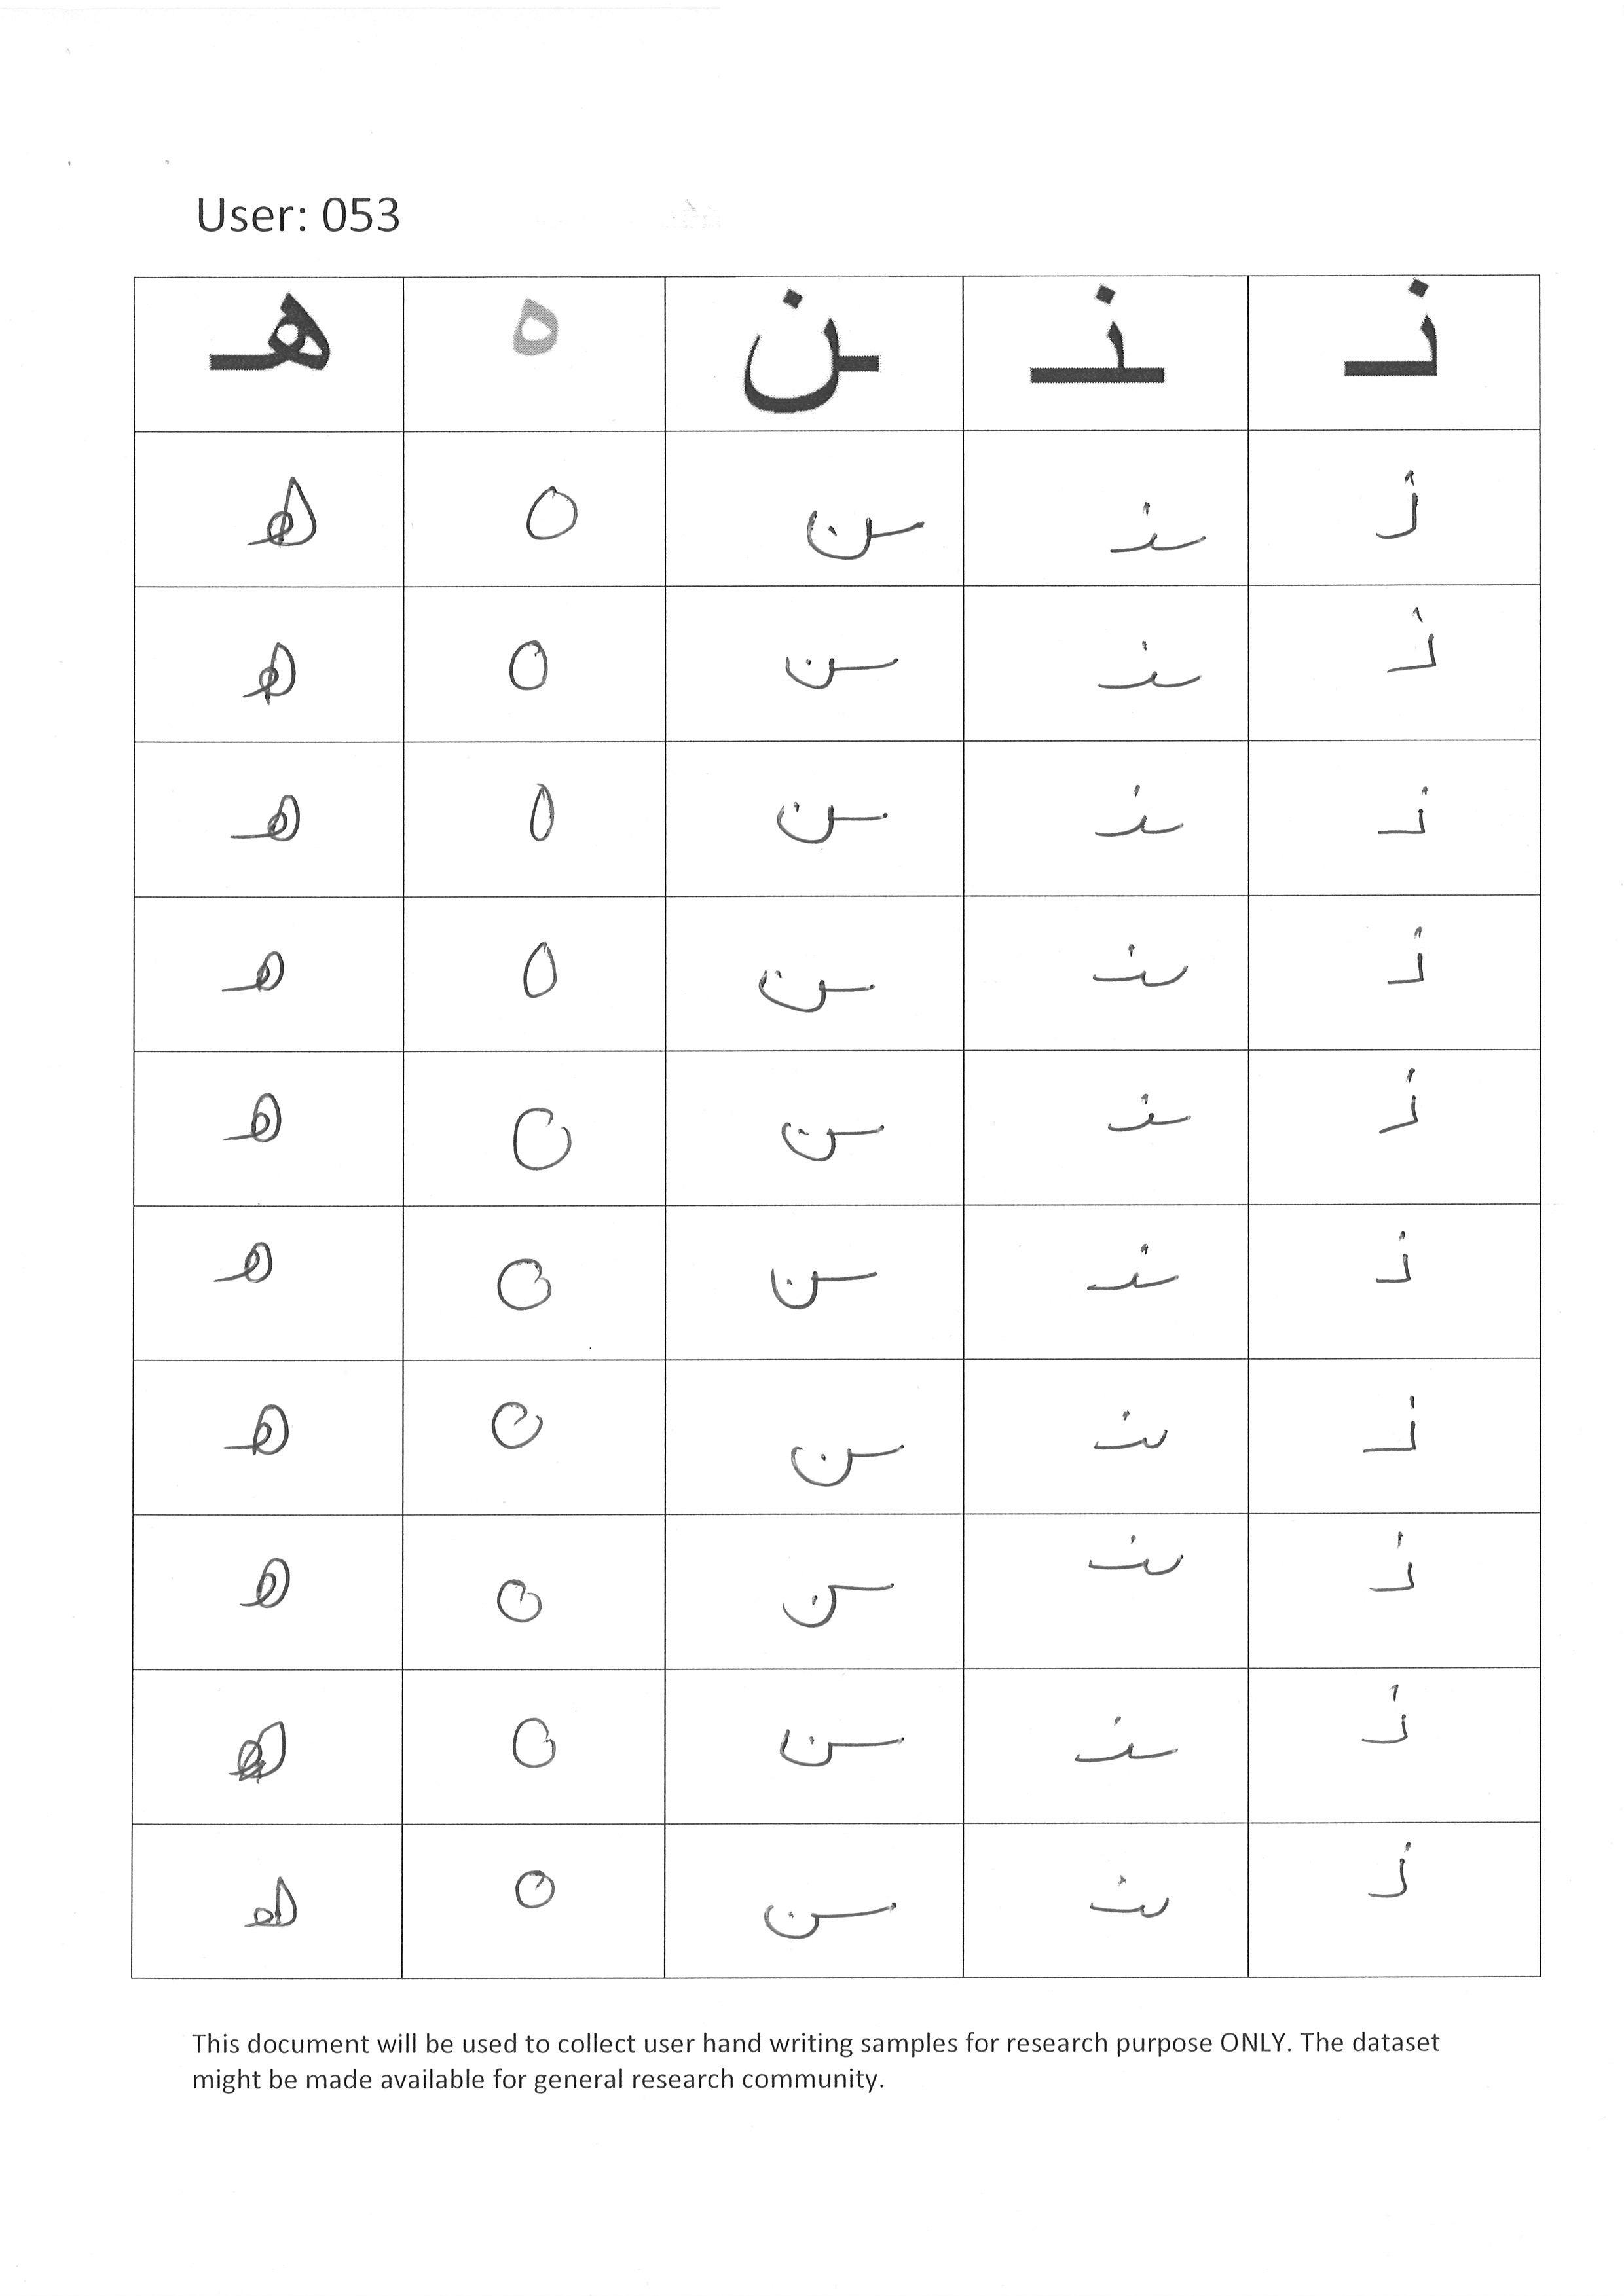 User: 053
نـ ـنـ ـن ه هـ
نـ ـنـ ـن ه هـ
نـ ـنـ ـن ه هـ
نـ ـنـ ـن ه هـ
نـ ـنـ ـن ه هـ
نـ ـنـ ـن ه هـ
نـ ـنـ ـن ه هـ
نـ ـنـ ـن ه هـ
نـ ـنـ ـن ه هـ
نـ ـنـ ـن ه هـ
نـ ـنـ ـن ه هـ
This document will be used to collect user hand writing samples for research purpose ONLY. The dataset
might be made available for general research community.